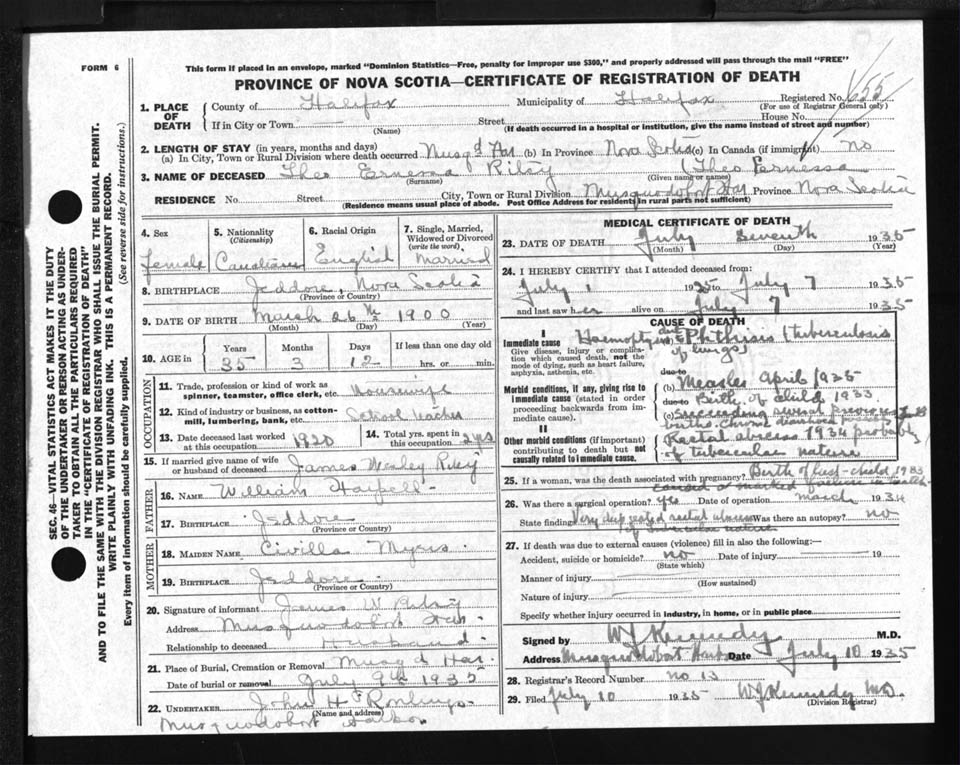 FORM 6
This form if placed in an envelope, marked "Dominion Statistics—Free, penalty for improper use $300," and properly addressed will pass through the mail "FREE"
PROVINCE OF NOVA SCOTIA—CERTIFICATE OF REGISTRATION OF DEATH
SEC. 46—VITAL STATISTICS ACT MAKES IT THE DUTY
OF THE UNDERTAKER OR PERSON ACTING AS UNDER-
TAKER TO OBTAIN ALL THE PARTICULARS REQUIRED
IN THE "CERTIFICATE OF REGISTRATION OF DEATH"
AND TO FILE THE SAME WITH THE DIVISION REGISTRAR WHO SHALL ISSUE THE BURIAL PERMIT.
WRITE PLAINLY WITH UNFADING INK. THIS IS A PERMANENT RECORD.
Every item of information should be carefully supplied. (See reverse side for instructions.)
1. PLACE OF DEATH County of Halifax Municipality of Halifax Registered No. 655
(For use of Registrar General only)
If in City or Town Street House No.
(Name) (If death occurred in a hospital or institution, give the name instead of street and number)
2. LENGTH OF STAY (in years, months and days)
(a) In City, Town or Rural Division where death occurred Musqd Har (b) In Province Nova Scotia (c) In Canada (if immigrant) no
3. NAME OF DECEASED Theo Ernessa Riley (Theo Pernessa
(Surname) (Given name or names)
RESIDENCE No. Street City, Town or Rural Division Musquodoboit Har Province Nova Scotia
(Residence means usual place of abode. Post Office Address for residents in rural parts not sufficient)
4. Sex 5. Nationality (Citizenship) 6. Racial Origin 7. Single, Married, Widowed or Divorced (write the word)
Female Canadian English Married
8. BIRTHPLACE Jeddore, Nova Scotia
(Province or Country)
9. DATE OF BIRTH March 26th 1900
(Month) (Day) (Year)
10. AGE in Years Months Days If less than one day old
35 3 12 hrs. or min.
OCCUPATION
11. Trade, profession or kind of work as spinner, teamster, office clerk, etc. Housewife
12. Kind of industry or business, as cotton-mill, lumbering, bank, etc. School teacher
13. Date deceased last worked at this occupation 1920 14. Total yrs. spent in this occupation 2 yrs
15. If married give name of wife or husband of deceased James Wesley Riley
FATHER
16. NAME William Harpell
17. BIRTHPLACE Jeddore
(Province or Country)
MOTHER
18. MAIDEN NAME Civilla Myers
19. BIRTHPLACE Jeddore
(Province or Country)
20. Signature of informant James W Riley
Address Musquodoboit Har
Relationship to deceased Husband
21. Place of Burial, Cremation or Removal Musqd Har.
Date of burial or removal July 9th 1935
22. UNDERTAKER John H
(Name and Address)
Musquodoboit Harbor
MEDICAL CERTIFICATE OF DEATH
23. DATE OF DEATH July Seventh 1935
(Month) (Day) (Year)
24. I HEREBY CERTIFY that I attended deceased from:
July 1 1925 to July 7 1935
and last saw her alive on July 7 1935
CAUSE OF DEATH
I
Immediate cause Haemoptysis due to Phthisis (tuberculosis
of lungs)
Give disease, injury or complication which caused death, not the mode of dying, such as heart failure, asphyxia, asthenia, etc.
due to
Morbid conditions, if any, giving rise to immediate cause (stated in order proceeding backwards from immediate cause).
(b) Measles April 1935
due to Birth of child 1933
(c) Succeeding several previous
births. Chronic diarrhoea
II
Other morbid conditions (if important) contributing to death but not causally related to immediate cause.
Rectal abscess 1934 probably
of tubercular nature
25. If a woman, was the death associated with pregnancy? Birth of last child 1933
caused a marked failure in health
26. Was there a surgical operation? yes Date of operation March 1934
State findings Very deep seated rectal abscess Was there an autopsy? no
of tubercular nature
27. If death was due to external causes (violence) fill in also the following:—
Accident, suicide or homicide? no Date of injury 19
(State which)
Manner of injury
(How sustained)
Nature of injury
Specify whether injury occurred in industry, in home, or in public place
Signed by W J Kennedy M.D.
Address Musquodoboit Harb Date July 10 1935
28. Registrar's Record Number no 13
29. Filed July 10 1935 W J Kennedy MD.
(Division Registrar)